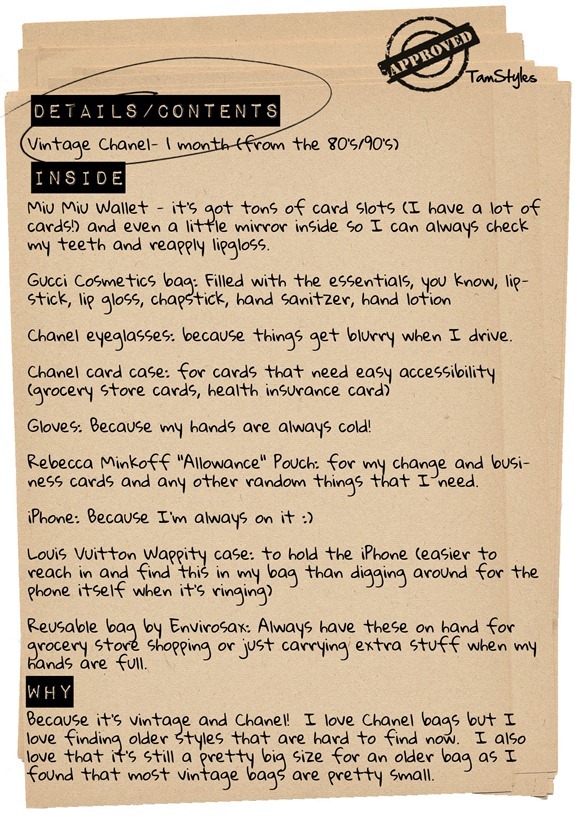 APPROVED
TamStyles
DETAILS/CONTENTS
Vintage Chanel- 1 month (from the 80's/90's)
INSIDE
Miu Miu Wallet - it's got tons of card slots (I have a lot of
cards!) and even a little mirror inside so I can always check
my teeth and reapply lipgloss.
Gucci Cosmetics bag: Filled with the essentials, you know, lip-
stick, lip gloss, chapstick, hand sanitzer, hand lotion
Chanel eyeglasses: because things get blurry when I drive.
Chanel card case: for cards that need easy accessibility
(grocery store cards, health insurance card)
Gloves: Because my hands are always cold!
Rebecca Minkoff "Allowance" Pouch: for my change and busi-
ness cards and any other random things that I need.
iPhone: Because I'm always on it :)
Louis Vuitton Wappity case: to hold the iPhone (easier to
reach in and find this in my bag than digging around for the
phone itself when it's ringing)
Reusable bag by Envirosax: Always have these on hand for
grocery store shopping or just carrying extra stuff when my
hands are full.
WHY
Because it's vintage and Chanel! I love Chanel bags but I
love finding older styles that are hard to find now. I also
love that it's still a pretty big size for an older bag as I
found that most vintage bags are pretty small.